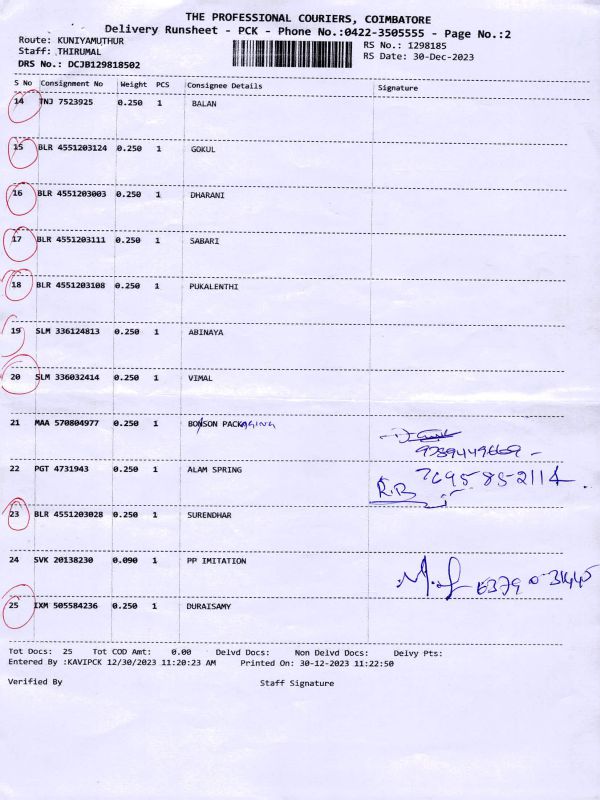 THE PROFESSIONAL COURIERS, COIMBATORE
Delivery Runsheet - PCK - Phone No.:0422-3505555 - Page No.:2
Route: KUNIYAMUTHUR
RS No.: 1298185
Staff: THIRUMAL
RS Date: 30-Dec-2023
DRS No.: DCJB129818502
S No Consignment No Weight PCS Consignee Details Signature
14 TNJ 7523925 0.250 1 BALAN
15 BLR 4551203124 0.250 1 GOKUL
16 BLR 4551203003 0.250 1 DHARANI
17 BLR 4551203111 0.250 1 SABARI
18 BLR 4551203108 0.250 1 PUKALENTHI
19 SLM 336124813 0.250 1 ABINAYA
20 SLM 336032414 0.250 1 VIMAL
21 MAA 570804977 0.250 1 BONSON PACKAGING
22 PGT 4731943 0.250 1 ALAM SPRING 7695852114
R.B
23 BLR 4551203028 0.250 1 SURENDHAR
24 SVK 20138230 0.090 1 PP IMITATION
25 IXM 505584236 0.250 1 DURAISAMY
Tot Docs: 25 Tot COD Amt: 0.00 Delvd Docs: Non Delvd Docs: Delvy Pts:
Entered By :KAVIPCK 12/30/2023 11:20:23 AM Printed On: 30-12-2023 11:22:50
Verified By Staff Signature